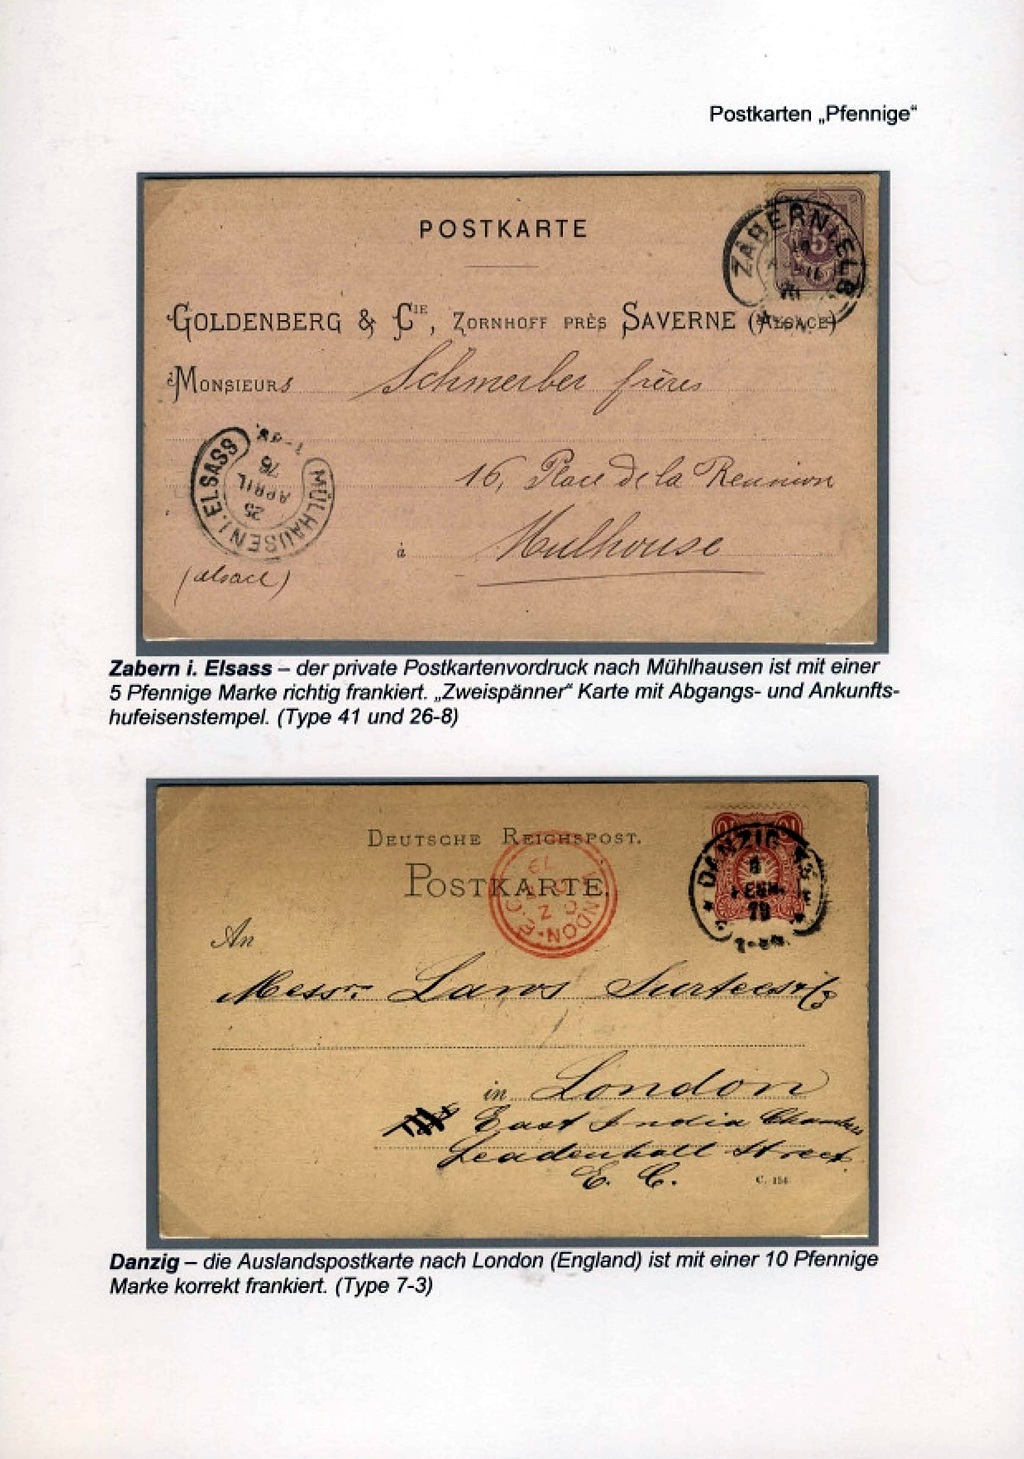 Postkarten „Pfennige“
POSTKARTE
ZABERN I. ELS
APRIL
GOLDENBERG & CIE, ZORNHOFF PRÈS SAVERNE (ALSACE)
MONSIEURS Schmerber frères
16, Place de la Reunion
à Mulhouse
(alsace)
MÜLHAUSEN I. ELSASS
25
APRIL
76
Zabern i. Elsass – der private Postkartenvordruck nach Mühlhausen ist mit einer
5 Pfennige Marke richtig frankiert. „Zweispänner“ Karte mit Abgangs- und Ankunfts-
hufeisenstempel. (Type 41 und 26-8)
DEUTSCHE REICHSPOST.
POSTKARTE.
DANZIG
79
LONDON·E.C
79
An
Messrs Laws Surtees & Co
in London
East India Chambers
Leadenhall Street
E. C.
C. 154
Danzig – die Auslandspostkarte nach London (England) ist mit einer 10 Pfennige
Marke korrekt frankiert. (Type 7-3)